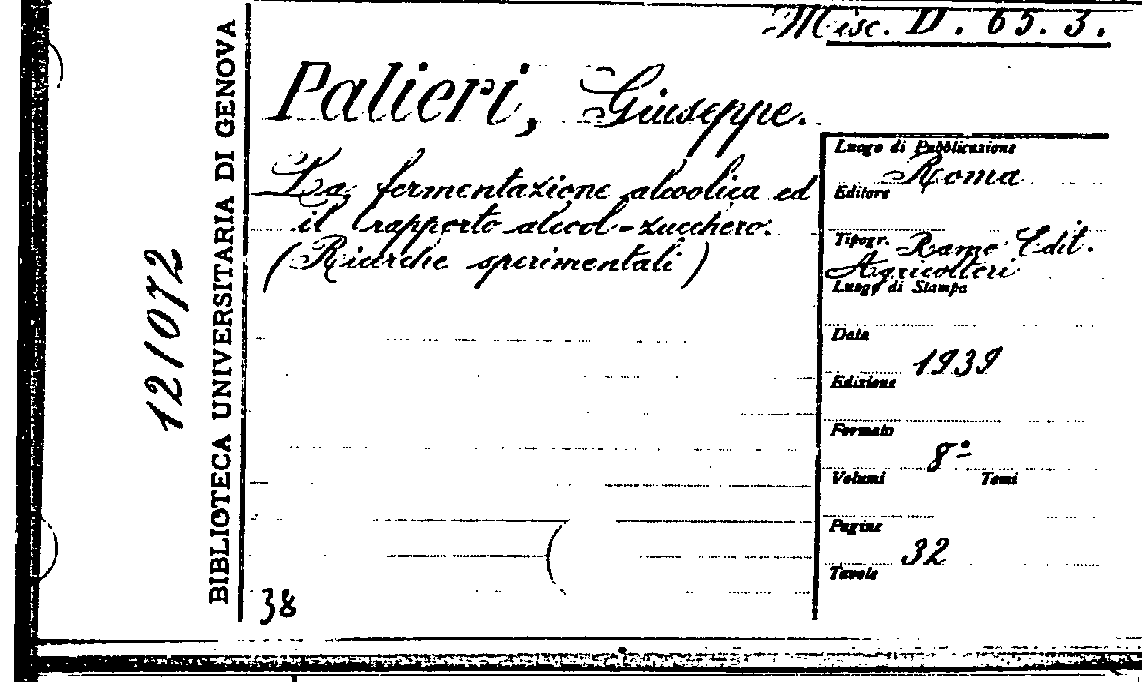 Misc. D. 65. 3.
Palieri, Giuseppe.
La fermentazione alcoolica ed
il rapporto alcol-zucchero.
(Ricerche sperimentali)
38
BIBLIOTECA UNIVERSITARIA DI GENOVA
121072
Luogo di Pubblicazione
Roma
Editore
Tipogr. Ramo Edit.
Agricoltori
Luogo di Stampa
Data
1939
Edizione
Formato
8º
Volumi Tomi
Pagine
32
Tavole